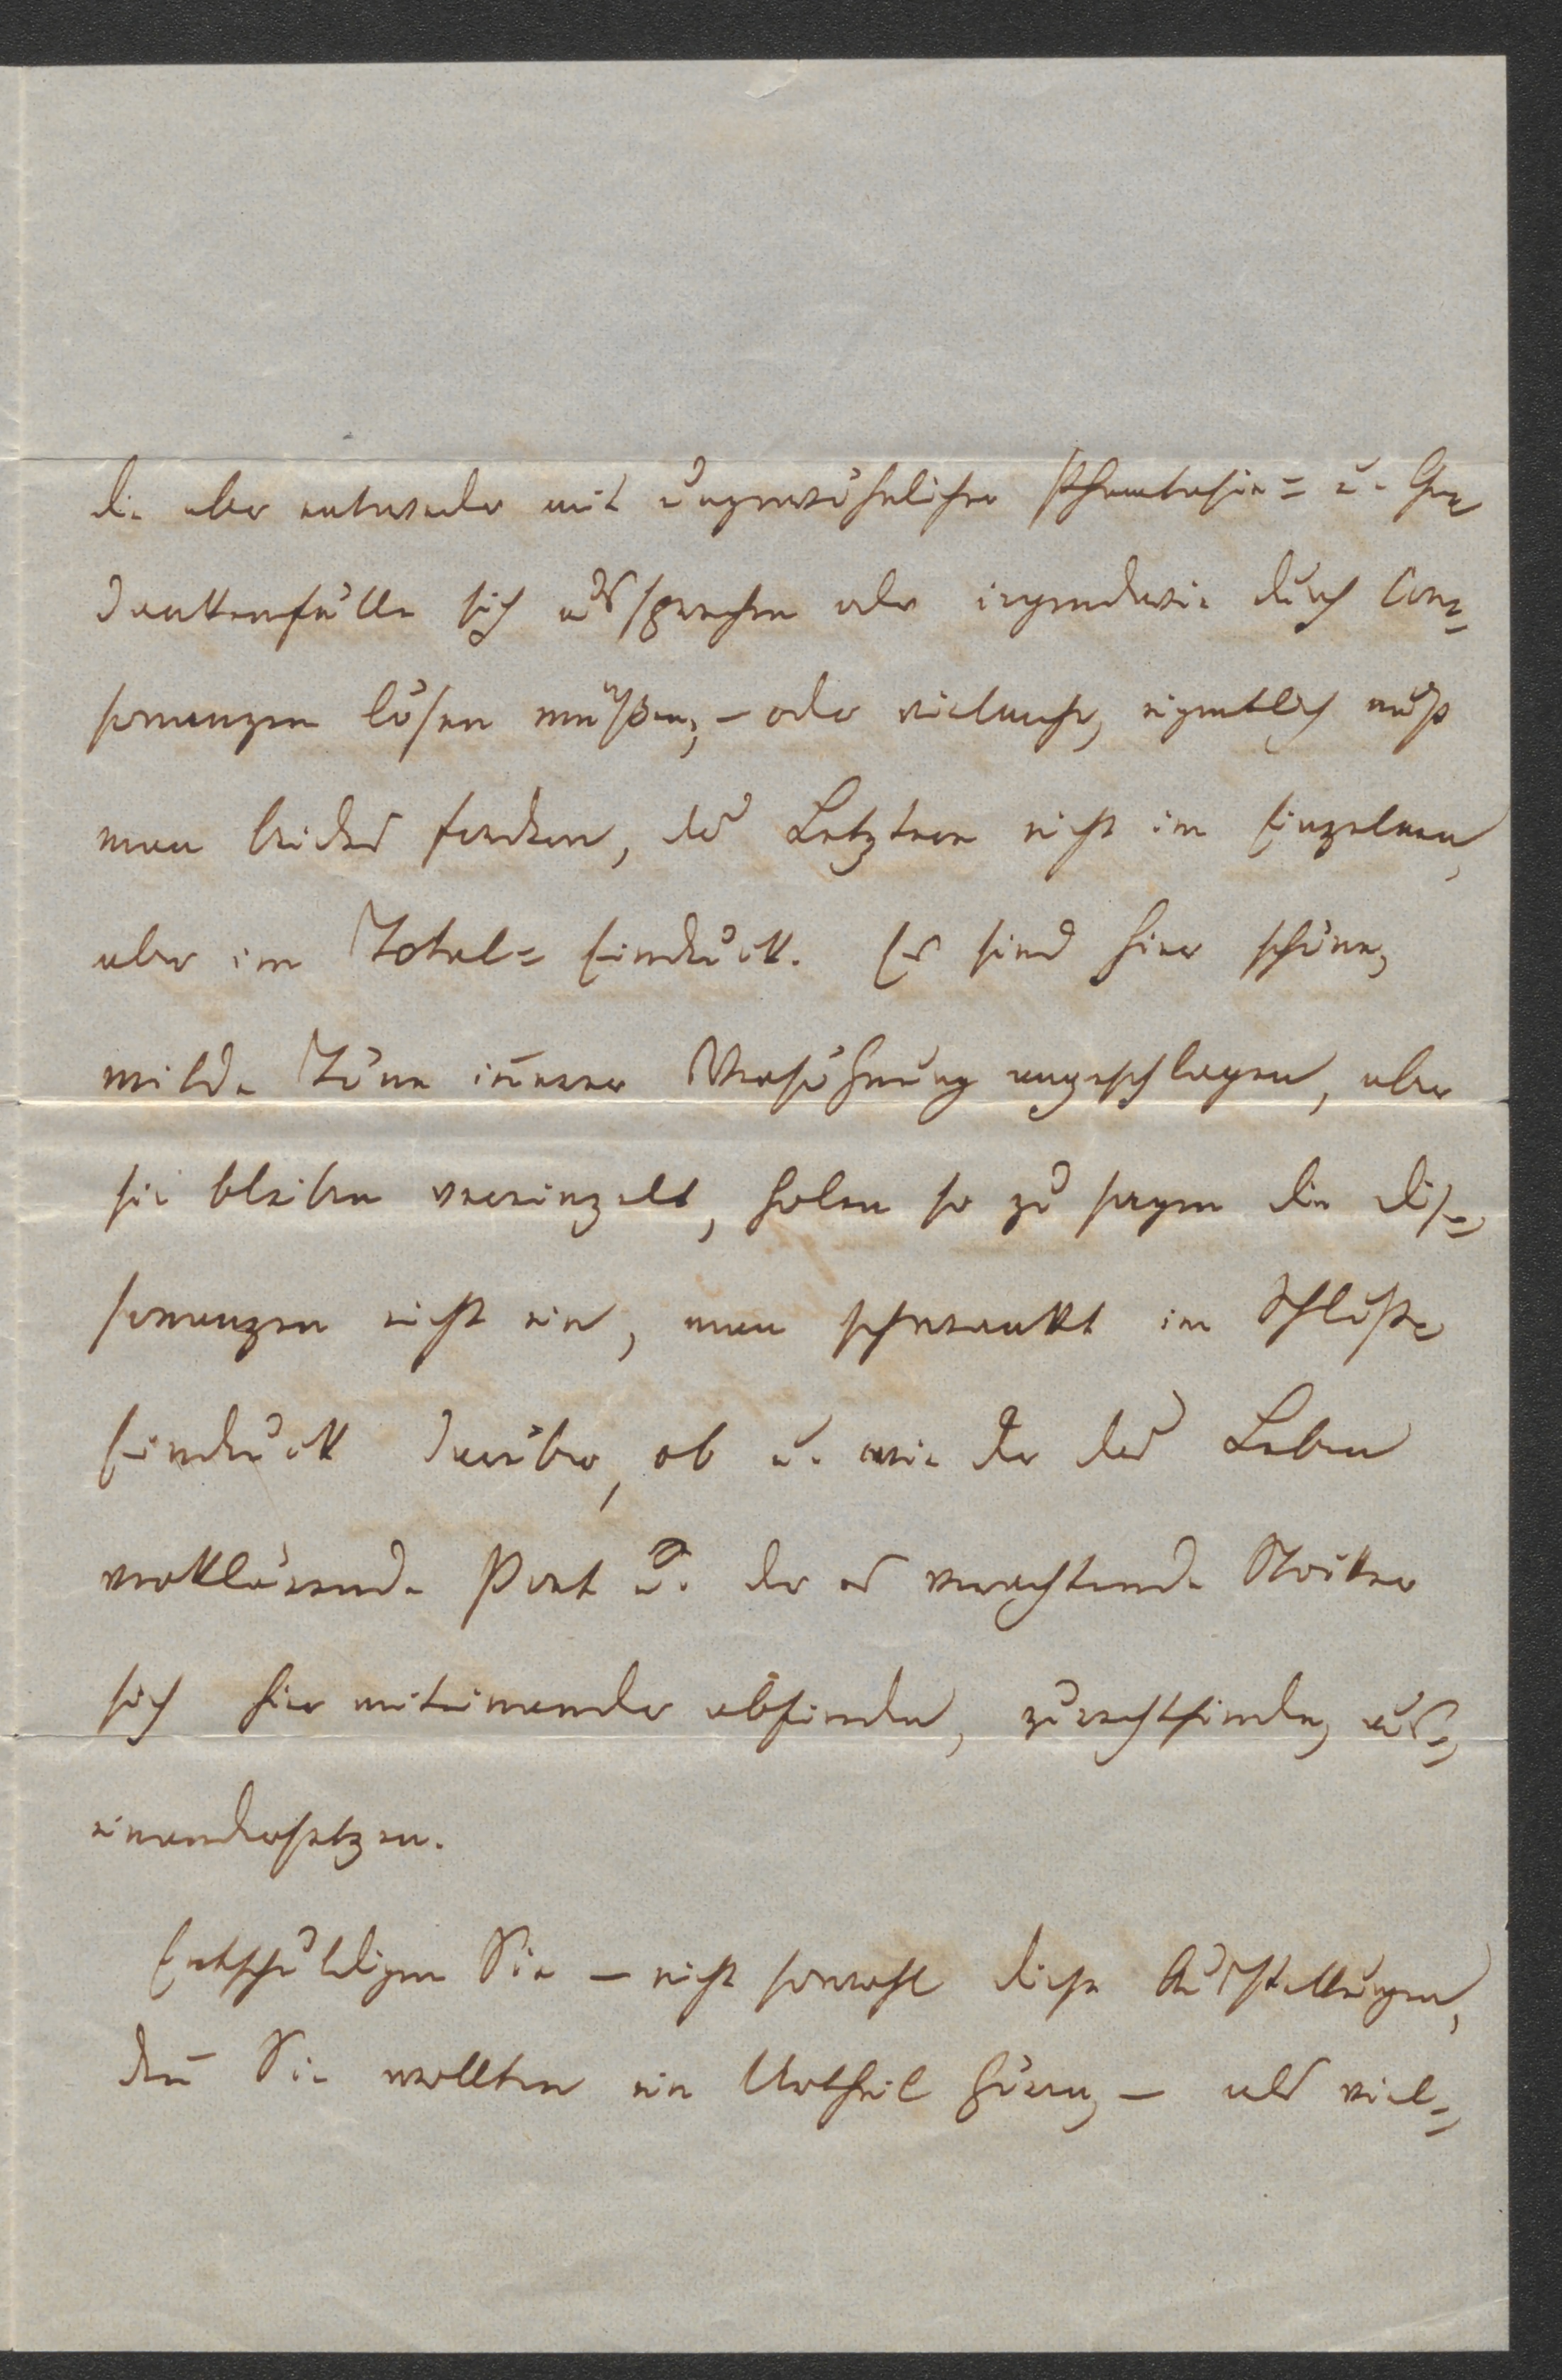 die aber entweder mit ungewöhnlicher Phantasie= u. Ge=
dankenfülle sich aussprechen oder irgendwie durch Con=
sonanzen lösen müßen, – oder vielmehr, eigentlich muß
man beides fordern, das Letztere nicht im Einzelnen,
aber im Total=Eindruck. Es sind hier schöne,
milde Töne iñerer Versöhnung angeschlagen, aber
sie bleiben vereinzelt, holen so zu sagen die Dis=
sonanzen nicht ein, man schwankt im Schluße
Eindruck darüber, ob u. wie der das Leben
verklärende Poet u. der es verachtende Stoiker
sich hier miteinander abfinden, zurechtfinden, aus=
einandersetzen.
Entschuldigen Sie – nicht sowohl diese Ausstellungen,
deñ Sie wollten ein Urtheil hören, – als viel=